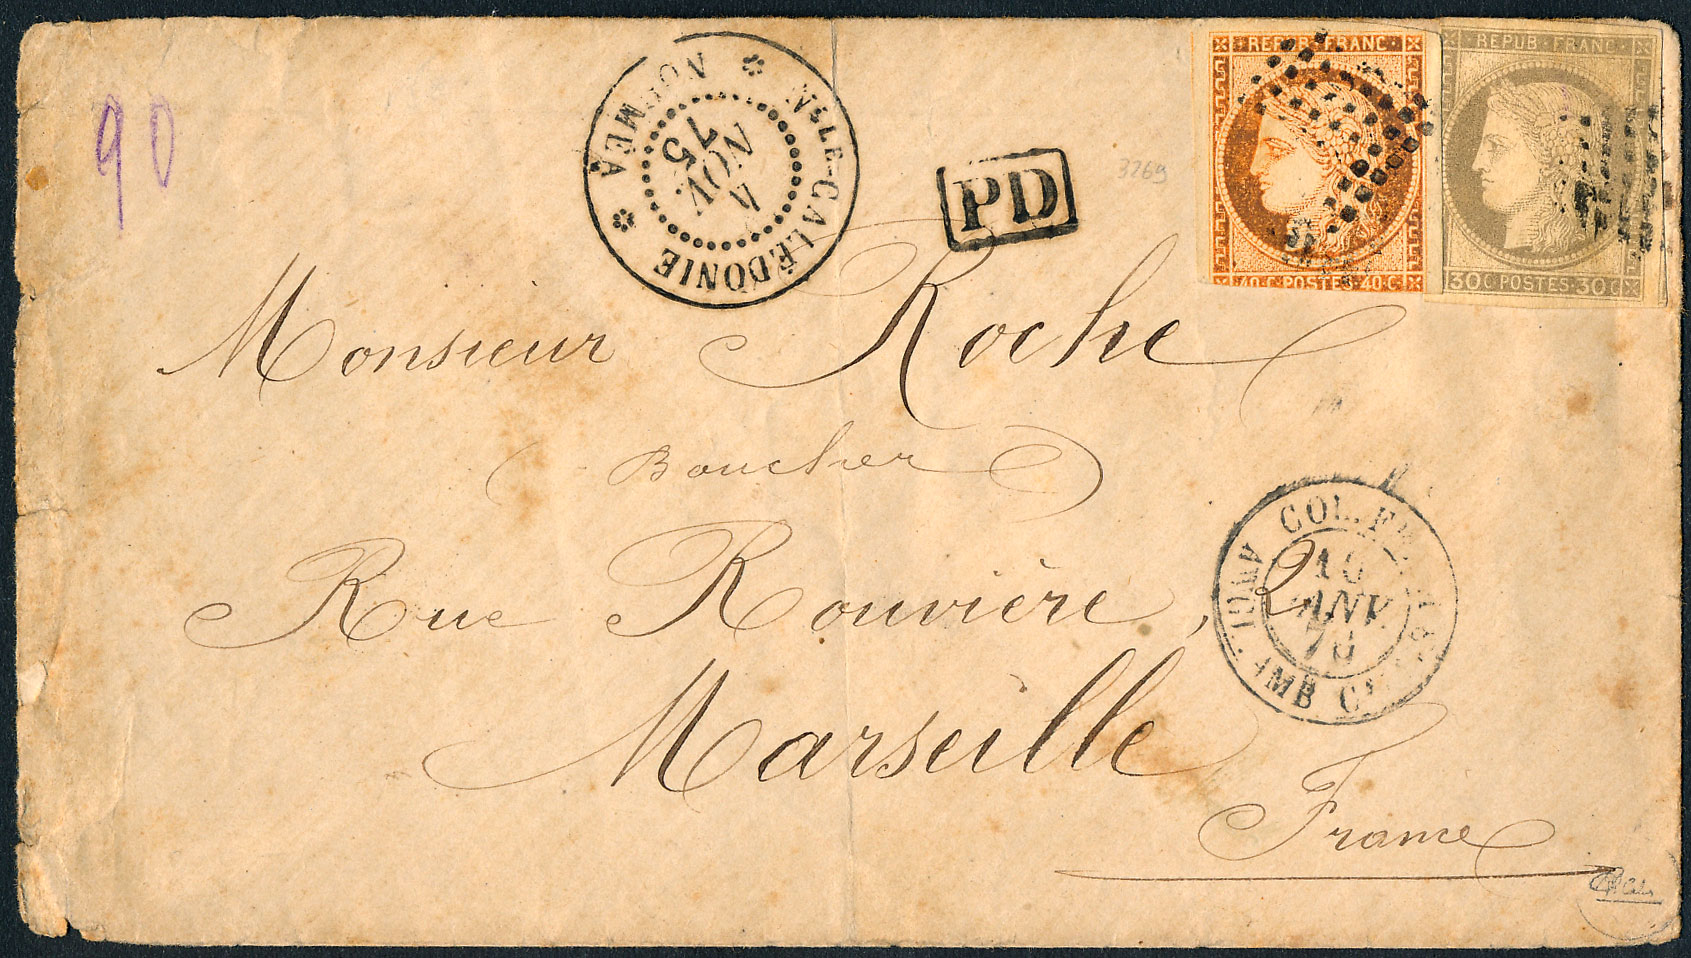 90
Nlle-CALÉDONIE
NOUMEA
4
NOV.
75
PD
3269
REPUB·FRANC·
40·C·POSTES·40·C·
REPUB·FRANC·
30·C·POSTES·30·C
Monsieur Roche
Boucher
Rue Rouvière, 2
Marseille
France
COL. F
ANV.
AMB